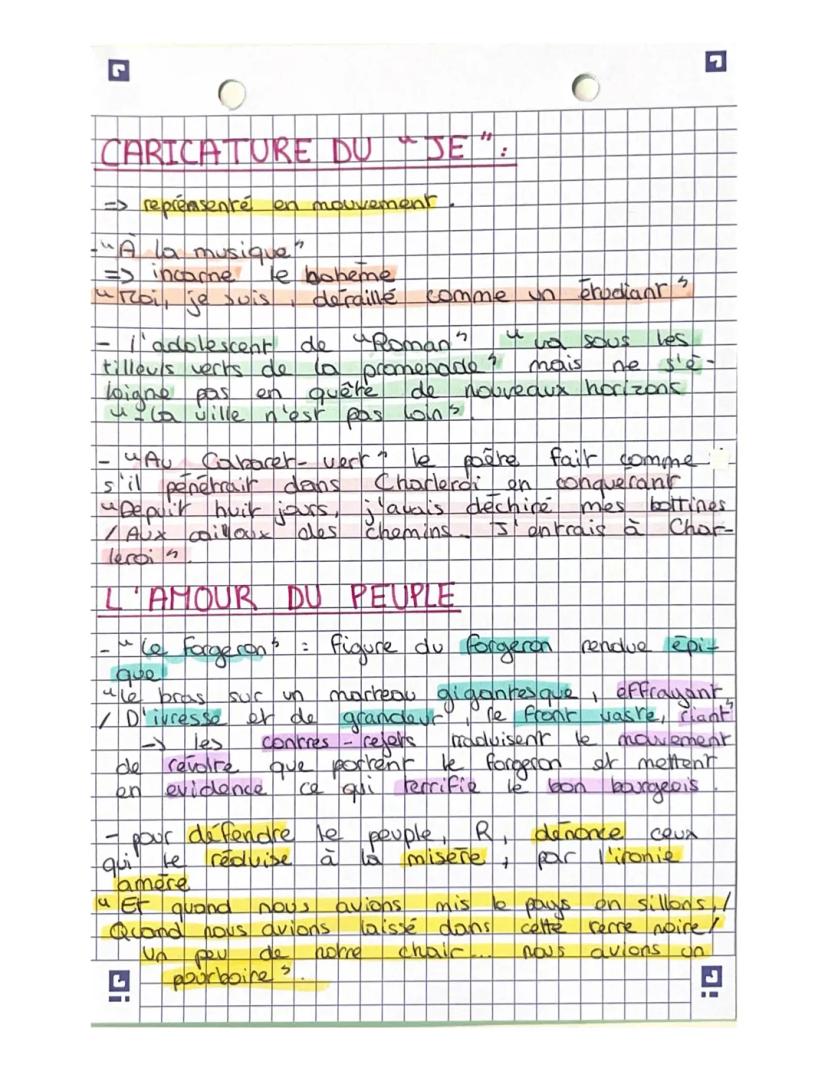 CARICATURE DU "JE" :
=> représenté en mouvement.
- "À la musique"
=> incarne le bohème
"Moi, je suis, déraillé comme un étudiant"
- l'adolescent de "Roman" "va sous les
tilleuls verts de la promenade" mais ne s'é-
loigne pas en quête de nouveaux horizons
"- la ville n'est pas loin".
- "Au Cabaret-vert" le poète fait comme
s'il pénétrait dans Charleroi en conquérant
"Depuis huit jours, j'avais déchiré mes bottines
/ Aux cailloux des chemins. J'entrais à Char-
leroi".
L'AMOUR DU PEUPLE
- "Le Forgeron" : figure du forgeron rendue épi-
que
"le bras sur un marteau gigantesque, effrayant,
/ D'ivresse et de grandeur, le front vaste, riant"
-> les contres-rejets traduisent le mouvement
de révolte que portent le forgeron et mettent
en evidence ce qui terrifie le bon bourgeois.
- pour défendre le peuple, R, dénonce ceux
qui le réduise à la misère, par l'ironie
amère
"Et quand nous avions mis le pays en sillons, /
Quand nous avions laissé dans cette terre noire /
Un peu de notre chair... nous avions un
pourboire".